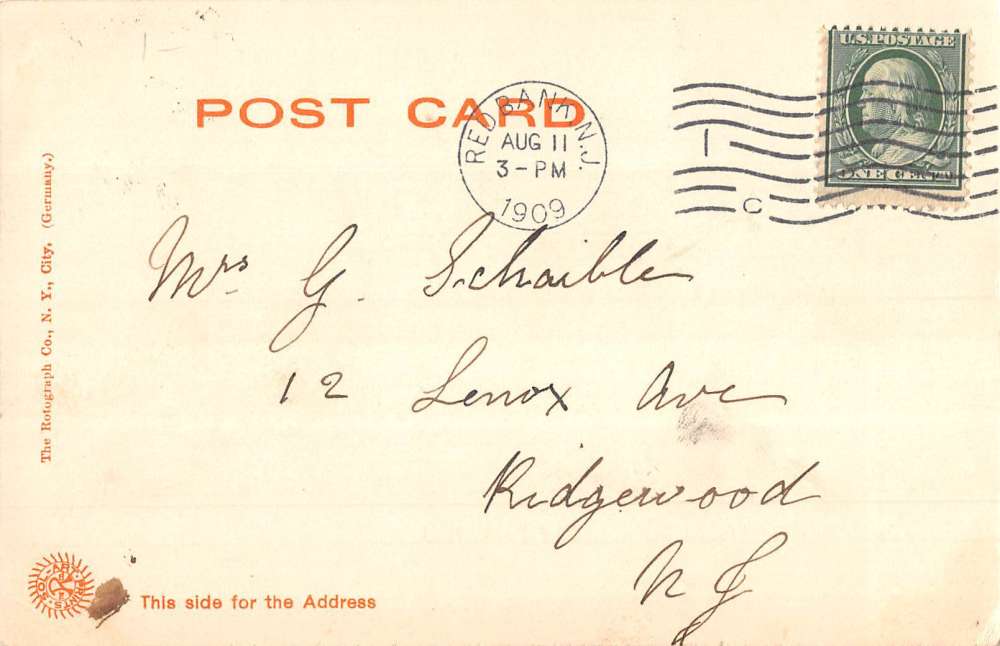 U.S.POSTAGE
ONE CENT
POST CARD
RED BANK, N.J.
AUG 11
3-PM
1909
1
C
Mrs G. Schaible
12 Lenox Ave
Ridgewood
N J
The Rotograph Co., N. Y., City. (Germany.)
SOL-ART PRINTS
This side for the Address